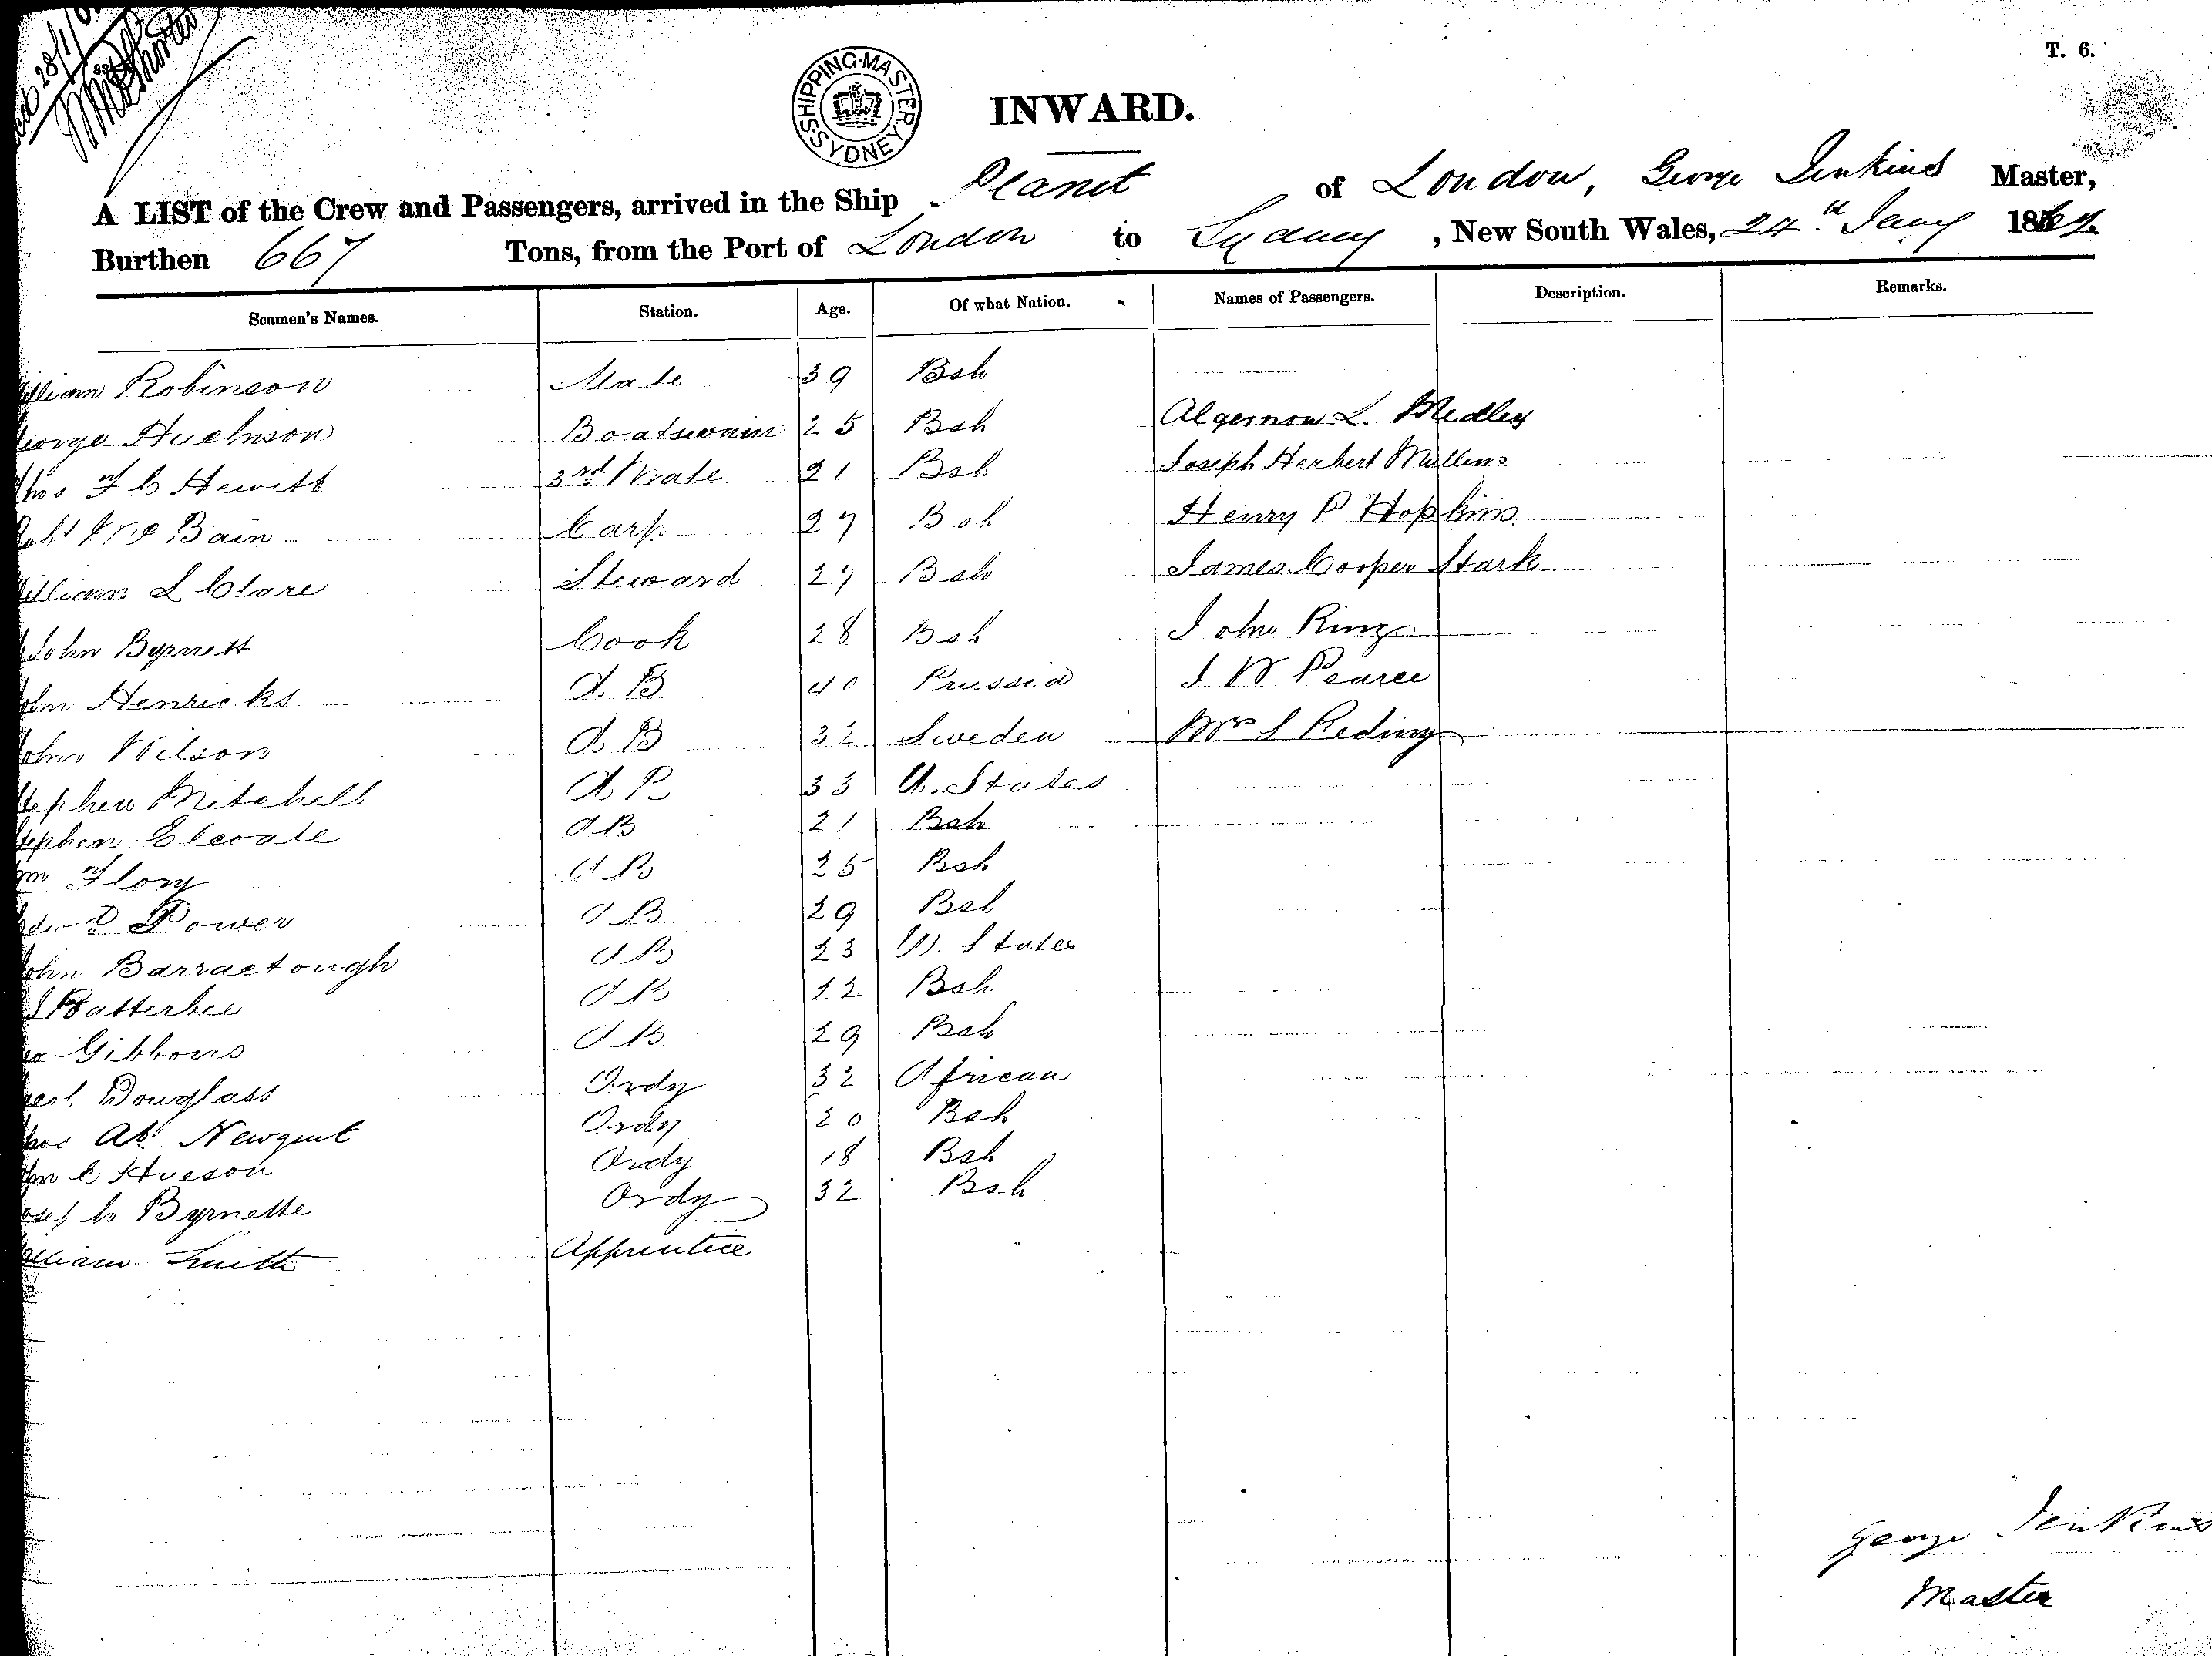 T. 6.
SHIPPING MASTER SYDNEY
INWARD.
A LIST of the Crew and Passengers, arrived in the Ship Planet of London, George Jenkins Master,
Burthen 667 Tons, from the Port of London to Sydney, New South Wales, 24th Jany 186
Seamen's Names. Station. Age. Of what Nation. Names of Passengers. Description. Remarks.
lliam Robinson Mate 39 Bsh
eorge Huchnson Boatswain 25 Bsh Algernon L. Medley
hos F C Hewitt 3rd Mate 21 Bsh Joseph Herbert Mullens
Bain Carp 27 Bsh Henry P Hopkins
illiam L Clare Steward 27 Bsh James Cooper Stark
John Byrnett Cook 28 Bsh John Ring
ohn Henricks A. B 40 Prussia J W Pearce
ohn Wilson A B 32 Sweden Mrs S Reding
tephen Mitchell A B 33 U. States
tephen Elcoate A B 21 Bsh
m Flory A B 25 Bsh
Power A B 29 Bsh
ohn Barractough A B 23 U. States
J Batterbee A B 22 Bsh
Gibbons A B 29 Bsh
Douglass Ordy 32 African
Newgent Ordy 20 Bsh
m C Hueson Ordy 18 Bsh
Byrnette Ordy 32 Bsh
lliam Smith Apprentice
George Jenkins
Master